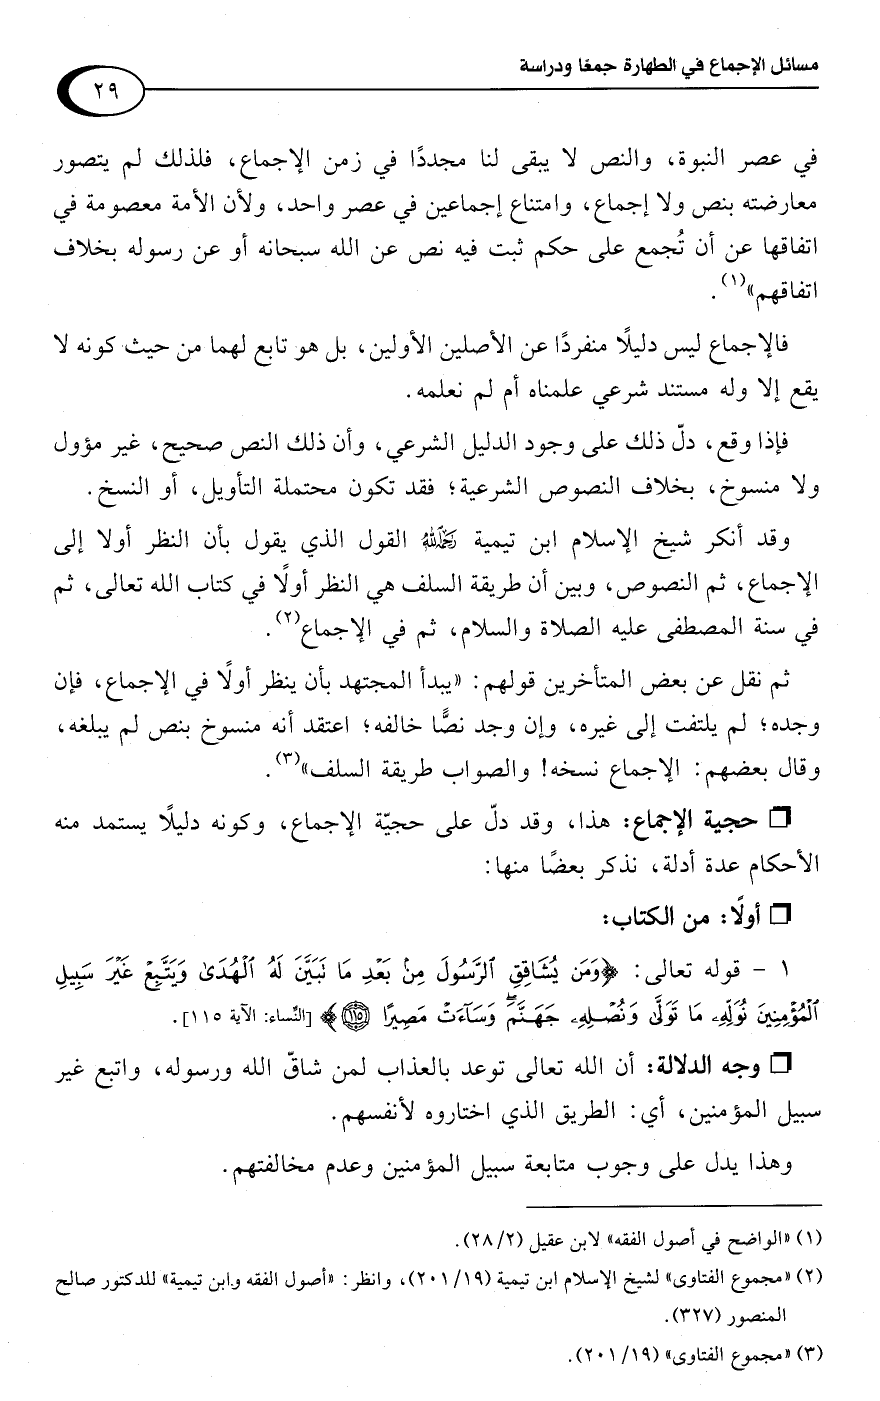 مسائل الإجماع في الطهارة جمعًا ودراسة
٢٩
في عصر النبوة، والنص لا يبقى لنا مجددًا في زمن الإجماع، فلذلك لم يتصور
معارضته بنص ولا إجماع، وامتناع إجماعين في عصر واحد، ولأن الأمة معصومة في
اتفاقها عن أن تُجمع على حكم ثبت فيه نص عن الله سبحانه أو عن رسوله بخلاف
اتفاقهم»(١).
فالإجماع ليس دليلًا منفردًا عن الأصلين الأولين، بل هو تابع لهما من حيث كونه لا
يقع إلا وله مستند شرعي علمناه أم لم نعلمه.
فإذا وقع، دلّ ذلك على وجود الدليل الشرعي، وأن ذلك النص صحيح، غير مؤول
ولا منسوخ، بخلاف النصوص الشرعية؛ فقد تكون محتملة التأويل، أو النسخ.
وقد أنكر شيخ الإسلام ابن تيمية رحمه الله القول الذي يقول بأن النظر أولا إلى
الإجماع، ثم النصوص، وبين أن طريقة السلف هي النظر أولًا في كتاب الله تعالى، ثم
في سنة المصطفى عليه الصلاة والسلام، ثم في الإجماع(٢).
ثم نقل عن بعض المتأخرين قولهم: «يبدأ المجتهد بأن ينظر أولًا في الإجماع، فإن
وجده؛ لم يلتفت إلى غيره، وإن وجد نصًّا خالفه؛ اعتقد أنه منسوخ بنص لم يبلغه،
وقال بعضهم: الإجماع نسخه! والصواب طريقة السلف»(٣).
❒ حجية الإجماع: هذا، وقد دلّ على حجيّة الإجماع، وكونه دليلًا يستمد منه
الأحكام عدة أدلة، نذكر بعضًا منها:
❒ أولًا: من الكتاب:
١ - قوله تعالى: ﴿وَمَن يُشَاقِقِ ٱلرَّسُولَ مِنۢ بَعْدِ مَا تَبَيَّنَ لَهُ ٱلْهُدَىٰ وَيَتَّبِعْ غَيْرَ سَبِيلِ
ٱلْمُؤْمِنِينَ نُوَلِّهِۦ مَا تَوَلَّىٰ وَنُصْلِهِۦ جَهَنَّمَۖ وَسَآءَتْ مَصِيرًا ١١٥﴾ [النِّساء: الآية ١١٥].
❒ وجه الدلالة: أن الله تعالى توعد بالعذاب لمن شاقّ الله ورسوله، واتبع غير
سبيل المؤمنين، أي: الطريق الذي اختاروه لأنفسهم.
وهذا يدل على وجوب متابعة سبيل المؤمنين وعدم مخالفتهم.
(١) «الواضح في أصول الفقه» لابن عقيل (٢٨/٢).
(٢) «مجموع الفتاوى» لشيخ الإسلام ابن تيمية (٢٠١/١٩)، وانظر: «أصول الفقه وابن تيمية» للدكتور صالح
المنصور (٣٢٧).
(٣) «مجموع الفتاوى» (٢٠١/١٩).